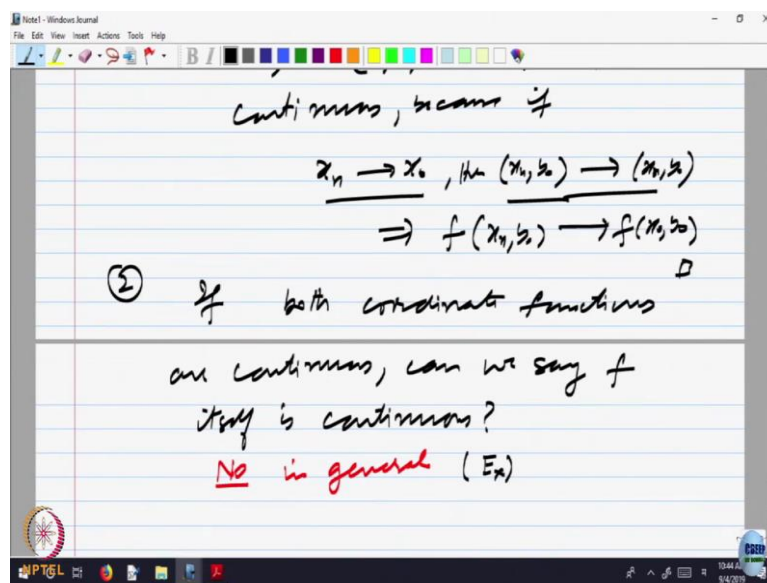 Note1 - Windows Journal
File Edit View Insert Actions Tools Help
continuous, because if
xₙ → x₀, then (xₙ, y₀) → (x₀, y₀)
⇒ f(xₙ, y₀) → f(x₀, y₀)
② If both coordinate functions
are continuous, can we say f
itself is continuous?
No in general (Ex)
NPTEL
CDEEP
10:44 A
9/4/2019